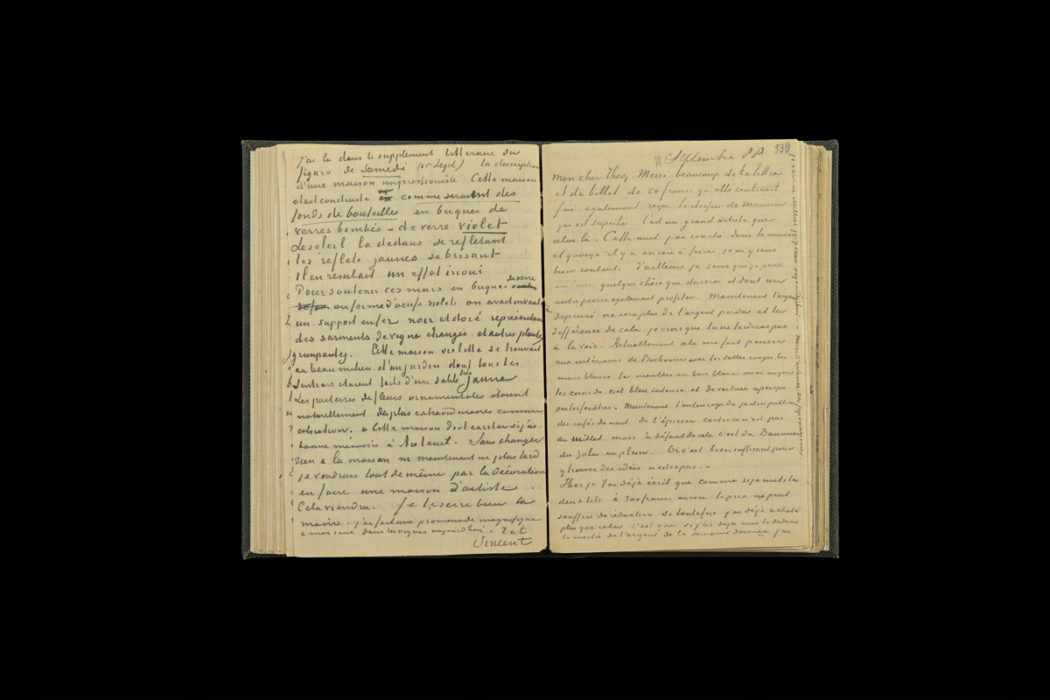 J'ai lu dans le supplement litteraire du
figaro de Samedi (15 Sept) la description
d'une maison impressioniste Cette maison
etait construite comme seraient des
fonds de bouteilles en briques de
verres bombés – de verre violet
Le soleil la dedans se reflétant
les reflets jaunes se brisant
Il en resultait un effet inouï
Pour soutenir ces murs en briques de verre
en forme d'oeufs violets on avait inventé
un support en fer noir et doré représentant
des sarments de vigne etranges et autres plantes
grimpantes. Cette maison violette se trouvait
au beau milieu d'un jardin dont tous les
sentiers etaient faits d'un sable très jaune
Les parterres de fleurs ornementales étaient
naturellement des plus extraordinaires comme
coloration. Cette maison doit exister si j'ai
bonne mémoire à Auteuil. Sans changer
rien a la maison ni maintenant ni plus tard
je voudrais tout de même par la décoration
en faire une maison d'artiste.
Cela viendra. Je te serre bien la
main. j'ai fait une promenade magnifique
a moi seul dans les vignes aujourd'hui. t. à t.
Vincent
Septembre 88 538
Mon cher Theo, Merci beaucoup de ta lettre
et du billet de 50 francs qu'elle contenait
J'ai egalement reçu le dessin de Maurin
qui est superbe C'est un grand artiste que
celui là. Cette nuit j'ai couché dans la maison
et quoiqu'il y a encore à faire je m'y sens
bien content. D'ailleurs je sens que je peux
en faire quelque chose qui durera et dont un
autre pourra egalement profiter. Maintenant l'argent
depensé ne sera plus de l'argent perdu et la
différence de cela je crois que tu ne tarderas pas
à la voir. Actuellement cela me fait penser
aux interieurs de Bosboom avec les dalles rouges les
murs blancs les meubles en bois blanc ou en noyer
les coins de ciel bleu intense et de verdure aperçus
par les fenêtres. Maintenant l'entourage du jardin public
des cafés de nuit de l'épicerie certes ce n'est pas
du Millet mais à défaut de cela c'est du Daumier
du Zola en plein. Or c'est bien suffisant pour
y trouver des idées n'est ce pas. –
Hier je t'ai déjà écrit que comme si je mets les
deux lits à 300 francs encore le prix ne peut
souffrir de réduction. Si toutefois j'ai déjà acheté
plus que cela c'est que si j'ai déjà mis là dedans
la moitié de l'argent de la semaine dernière j'ai